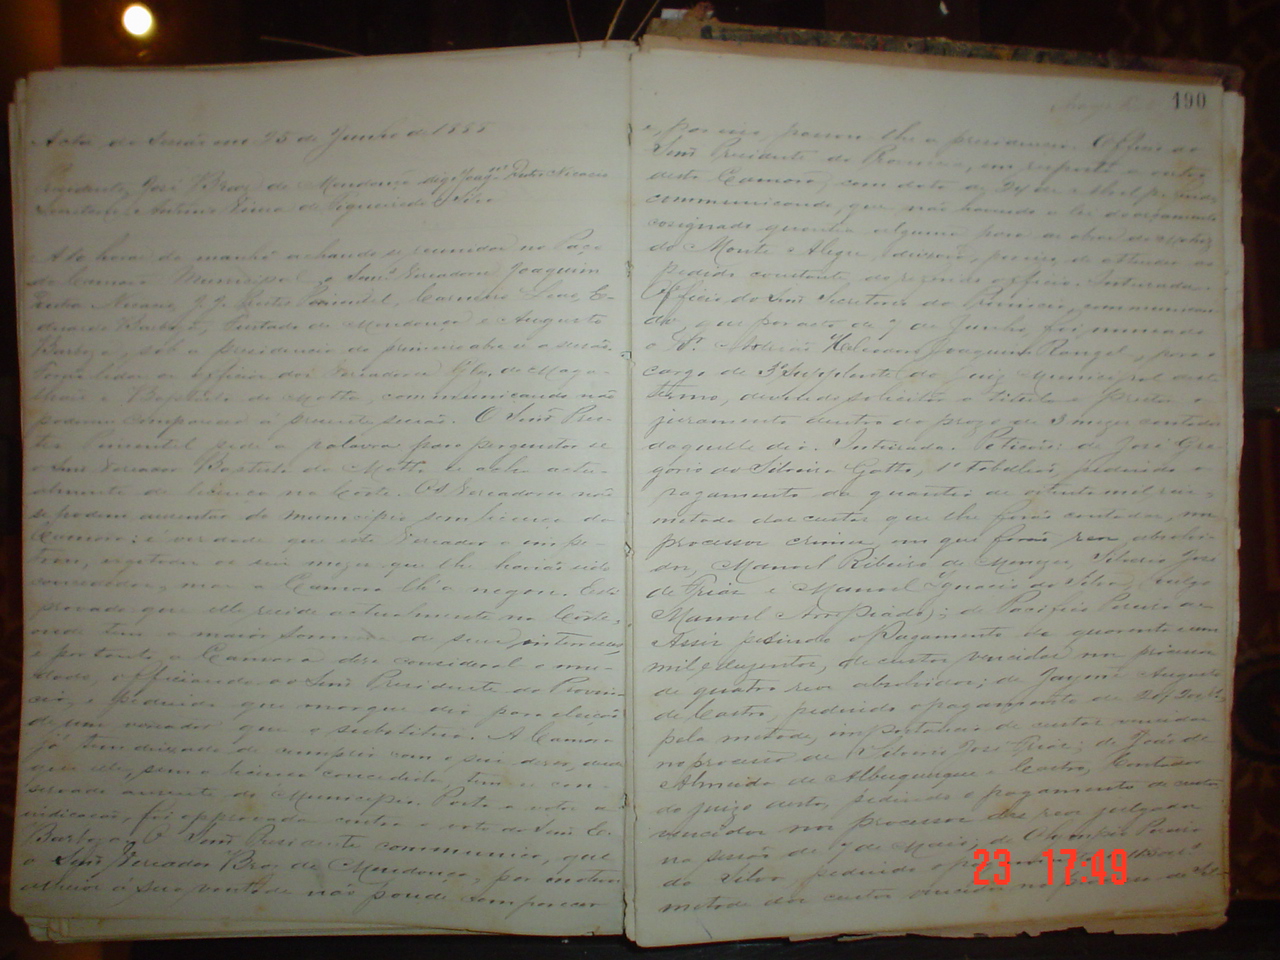 Acta da Sessão em 25 de Junho de 1888
Presidente, José Braz de Mendonça
Secretario, Antonio Vieira de Siqueira e Silva
horas da manhã achando-se reunidos no Paço
da Camara Municipal os Senrs. Vereadores Joaquim
Carneiro Leão, E-
duardo Barboza, Furtado de Mendonça e Augusto
Barboza, sob a presidencia do primeiro abre-se a sessão.
Foram lidos os officios dos Vereadores de Maga-
lhães e Baptista da Motta, communicando não
poderem comparecer á presente sessão. O Senr.
Pimentel pede a palavra para perguntar se
o Senr. Vereador Baptista da Motta se acha actu-
almente de licença na Côrte. Os Vereadores não
se podem ausentar do municipio sem licença da
Camara: é verdade que este Vereador a
seis mezes que lhe havião sido
concedidos, mas a Camara lh'a negou. Está
provado que elle reside actualmente na Côrte,
onde tem a maior somma de seus interesses
e portanto, a Camara deve considerar o
officiando ao Senr. Presidente da Provin-
cia, e pedindo que marque dia para eleição
de um vereador que o substitua. A Camara
já tem deixado de cumprir com o seu dever,
que elle, sem a licença concedida, tem se con-
servado ausente do Municipio. Posta a votos a
indicação, foi approvada contra o voto do Senr. E.
Barboza. O Senr. Presidente communica, que
o Senr. Vereador Braz de Mendonça, por motivos
alheios á sua vontade não poude comparecer
190
e, por isso, passou-lhe a presidencia. Officio do
Senr. Presidente da Provincia, em resposta a outro
desta Camara, com data de 24 de Abril
communicando, que não havendo a lei do orçamento
consignado quantia alguma para as obras da Matriz
do Monte Alegre, deixou, por isso, de attender ao
pedido constante do referido officio. Inteirada.
Officio do Senr. Secretario da Provincia, communican-
do, que por acto de 7 de Junho, foi nomeado
o Dr. Joaquim Rangel, para o
cargo de 3º Supplente do Juiz Municipal deste
Termo, devendo solicitar o titulo e prestar o
juramento dentro do prazo de 3 mezes contados
daquelle dia. Inteirada. Petições: de José Gre-
gorio da Silveira Gatto, 1º Tabellião, pedindo o
pagamento da quantia de oitenta mil reis,
metade das custas que lhe forão contadas, nos
processos crimes, em que forão reos absolvi-
dos, Manoel Ribeiro de Menezes, Silverio José
de Frias e Manoel Ignacio da Silva, (vulgo
Manoel Arrepiado); de Pacifico Pereira de
Assis pedindo o pagamento de quarenta e um
mil e duzentos, de custas vencidas nos processos
de quatro reos absolvidos; de Jayme Augusto
de Castro, pedindo o pagamento de
pela metade, importancia de custas vencidas
no processo de Silverio José Frias; de João de
Almeida de Albuquerque e Castro, Contador
do juizo desta, pedindo o pagamento de custas
vencidas nos processos dos reos julgados
na sessão de 7 de Maio; de Olympio Pereira
da Silva, pedindo o pagamento
metade das custas vencidas no processo de
23 17:49